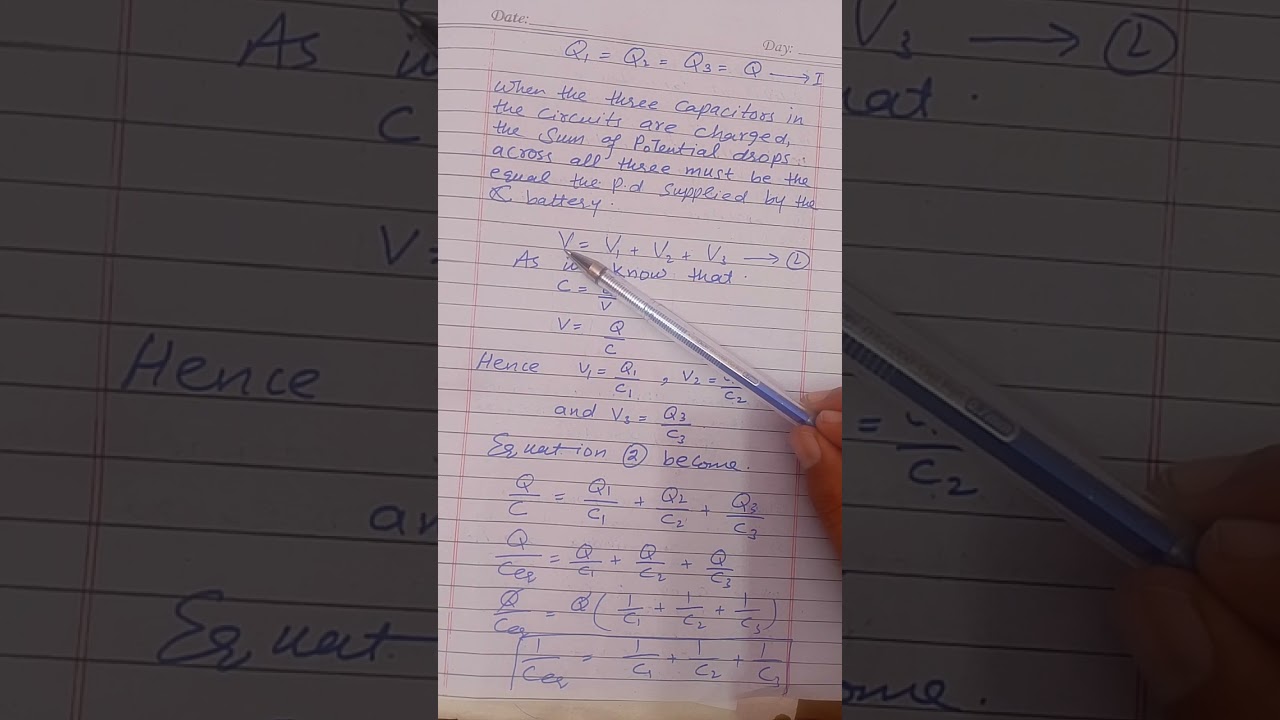 Date:
Day:
Q₁ = Q₂ = Q₃ = Q → I
When the three Capacitors in
the circuits are charged,
the Sum of Potential drops
across all three must be the
equal the p.d supplied by the
battery.
V = V₁ + V₂ + V₃ → ②
As know that.
C = /V
V = Q/C
Hence V₁ = Q₁/C₁ , V₂ = /C₂
and V₃ = Q₃/C₃
Equation ② become.
Q/C = Q₁/C₁ + Q₂/C₂ + Q₃/C₃
Q/Ceq = Q/C₁ + Q/C₂ + Q/C₃
Q/Ceq = Q ( 1/C₁ + 1/C₂ + 1/C₃ )
1/Ceq = 1/C₁ + 1/C₂ + 1/C₃